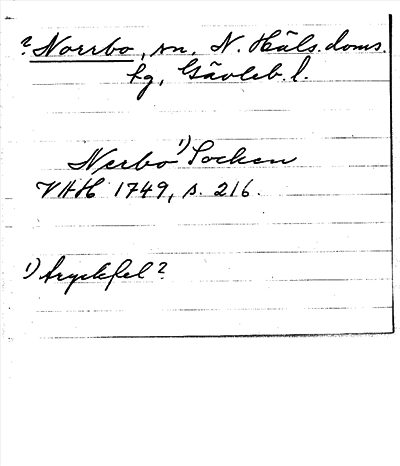 ? Norrbo, sn, N. Häls. doms.
hg, Gävleb. l.
Nerbo 1) Socken
VAH 1749, s. 216.
1) tryckfel?